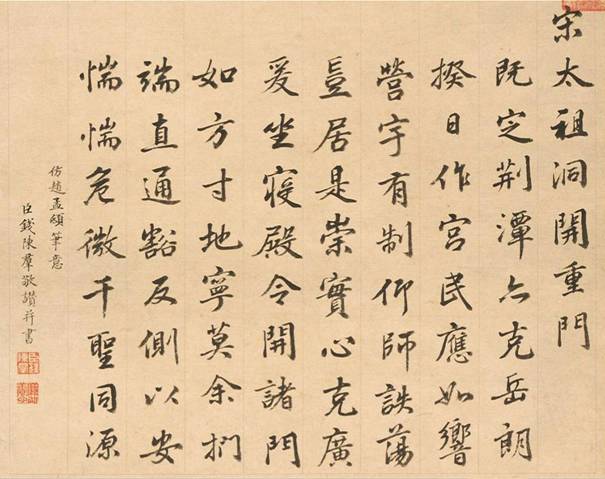 宋太祖洞開重門
既定荆潭亦克岳朗
揆日作宮民應如響
營宇有制仰師詄蕩
豈居是崇實心克廣
爰坐寢殿令開諸門
如方寸地寧莫余捫
端直通豁反側以安
惴惴危微千聖同源
仿趙孟頫筆意
臣錢陳羣敬讚并書